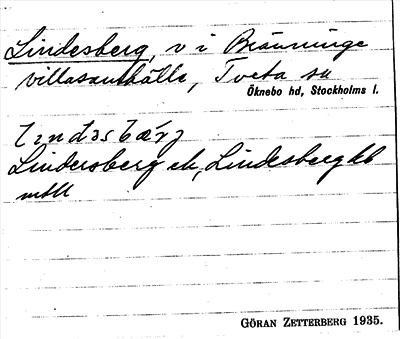 Lindesberg, v i Bränninge
villasamhälle, Tveta sn
Öknebo hd, Stockholms l.
Lindersberg ek, Lindesberg kb
mtll
GÖRAN ZETTERBERG 1935.